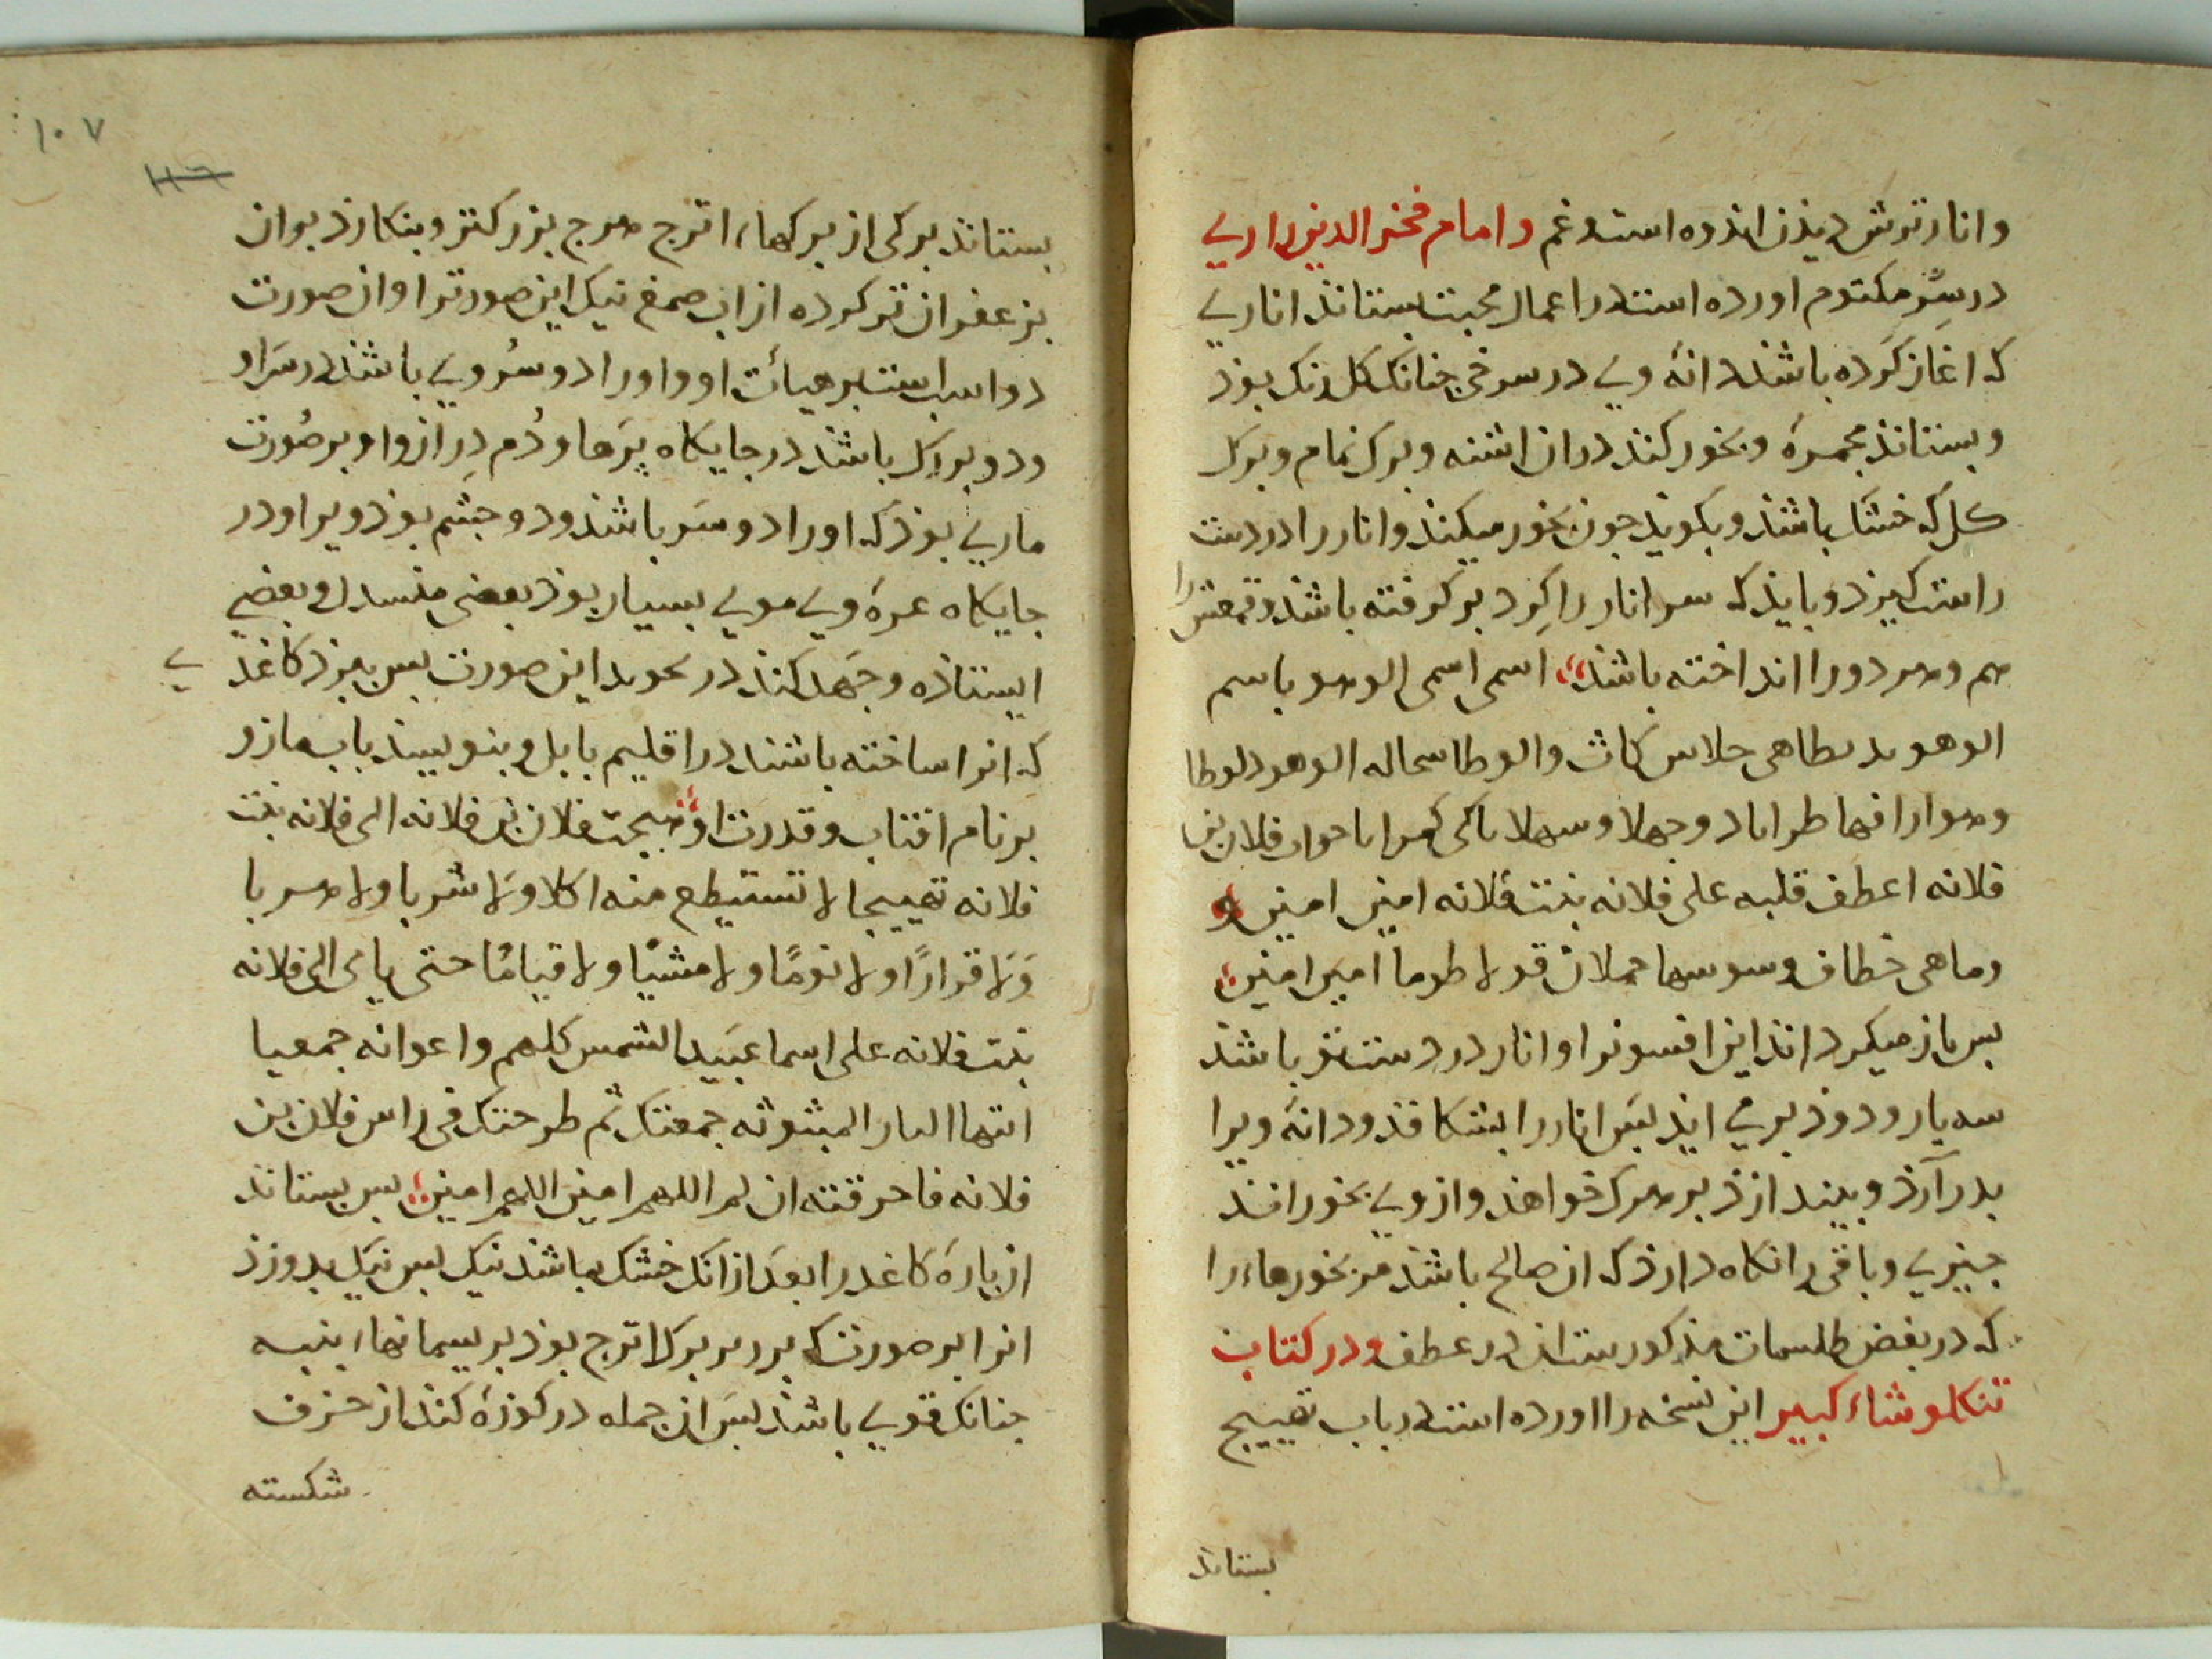 وانار ترش دیذن اندوه است وغم وامام فخر الدین رازي
در سِرّ مکتوم اورده است در اعمال محبت بستانذ اناري
که اغاز کرده باشذ دانهٔ وي در سرخي جنانک کل رنک بوذ
وبستانذ مجمرهٔ وبخور کنذ دران اشنه وبرک نمام وبرک
کل که خشک باشذ وبکویذ جون بخور میکنذ وانار را در دست
راست کیرذ وبایذ که سر انار را کِرد بر کرفته باشذ وقمعش را
هم وهر دو را انداخته باشذ اسمی اسمی الوهو باسم
الوهوىد ىطاهی حلاس کاث والوطا سحاله الوهود لوطا
وهوارا فها طراباد وجهلا وسهلا فلان بن
فلانه اعطف قلبه علی فلانه بنت فلانه امین امین و
وماهی خطاف وسوسها حملان قولا طوما امین امین
بس باز میکرداند این افسونرا وانار در دستش باشذ
سه بار ودوذ بر مي ایذ بسَ انار را بشکافذ ودانهٔ ویرا
بدر آرَذ وبیندازذ بر هرک خواهذ وازوي بخور افند
جیزي وباقی را نکاه دارذ که ان صالح باشذ مر بخورهاء را
که در بعض طلسمات مذکورست ان در عطف ودر کتاب
تنکلوشاء کبیر این نسخه را اورده است در باب تهییج
بستانذ
۱۰۷
بستانذ برکی از برکهاء اترج هرج بزرکتر وبنکارذ بر ان
بزعفران تر کرده از اب صمغ نیک این صورترا وان صورت
دو اسب است بر هیأت او واورا دو سُروي باشذ در سَر او
ودو بر کل باشذ در جایکاه پَرها ودُم دِراز واو بر صُورت
ماري بوذ که اورا دو سَر باشذ ودو جشم بوذ ویرا ودر
جایکاه عرهٔ وي موي بسیار بوذ بعضی منسدل وبعضي
ایستاذه وجَهد کنذ در این صورت بس کاغذي
که انرا ساخته باشند در اقلیم بابل وبنویسند باب مازو
بر نام افتاب وقدرت او هیجت فلان بن فلانه الی فلانه بنت
فلانه تهییجا لا تستیطع منه اکلا وَلا شربا ولا هربا
وَلا قرارًا ولا نومًا ولا مشیًا ولا قیامًا حتی یاتی الی فلانه
بنت فلانه علی اسما عبَید الشمس کلهم واعوانه جمعیا
ایتها النار المبثوثه جمعتک ثم طرحتک فی راس فلان بن
فلانه فاحرقته ان لم اللهم امین اللهم امین بس بستاند
ان بارهٔ کاغد را بعدَ از انک خشک باشذ نیک بس نیک بدوزذ
انرا بر صورت که بر برک اترج بوذ بریسمانهاء بنبه
جنانک قوي باشذ بسَ ان جمله در کوزهٔ کنذ از خزف
شکسته